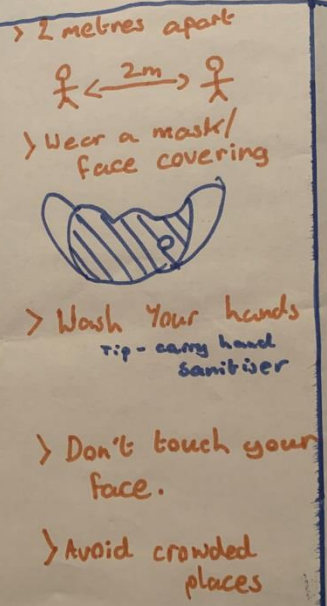 > 2 metres apart
2m
> Wear a mask/
face covering
> Wash Your hands
Tip - carry hand
sanitiser
> Don't touch your
face.
> Avoid crowded
places